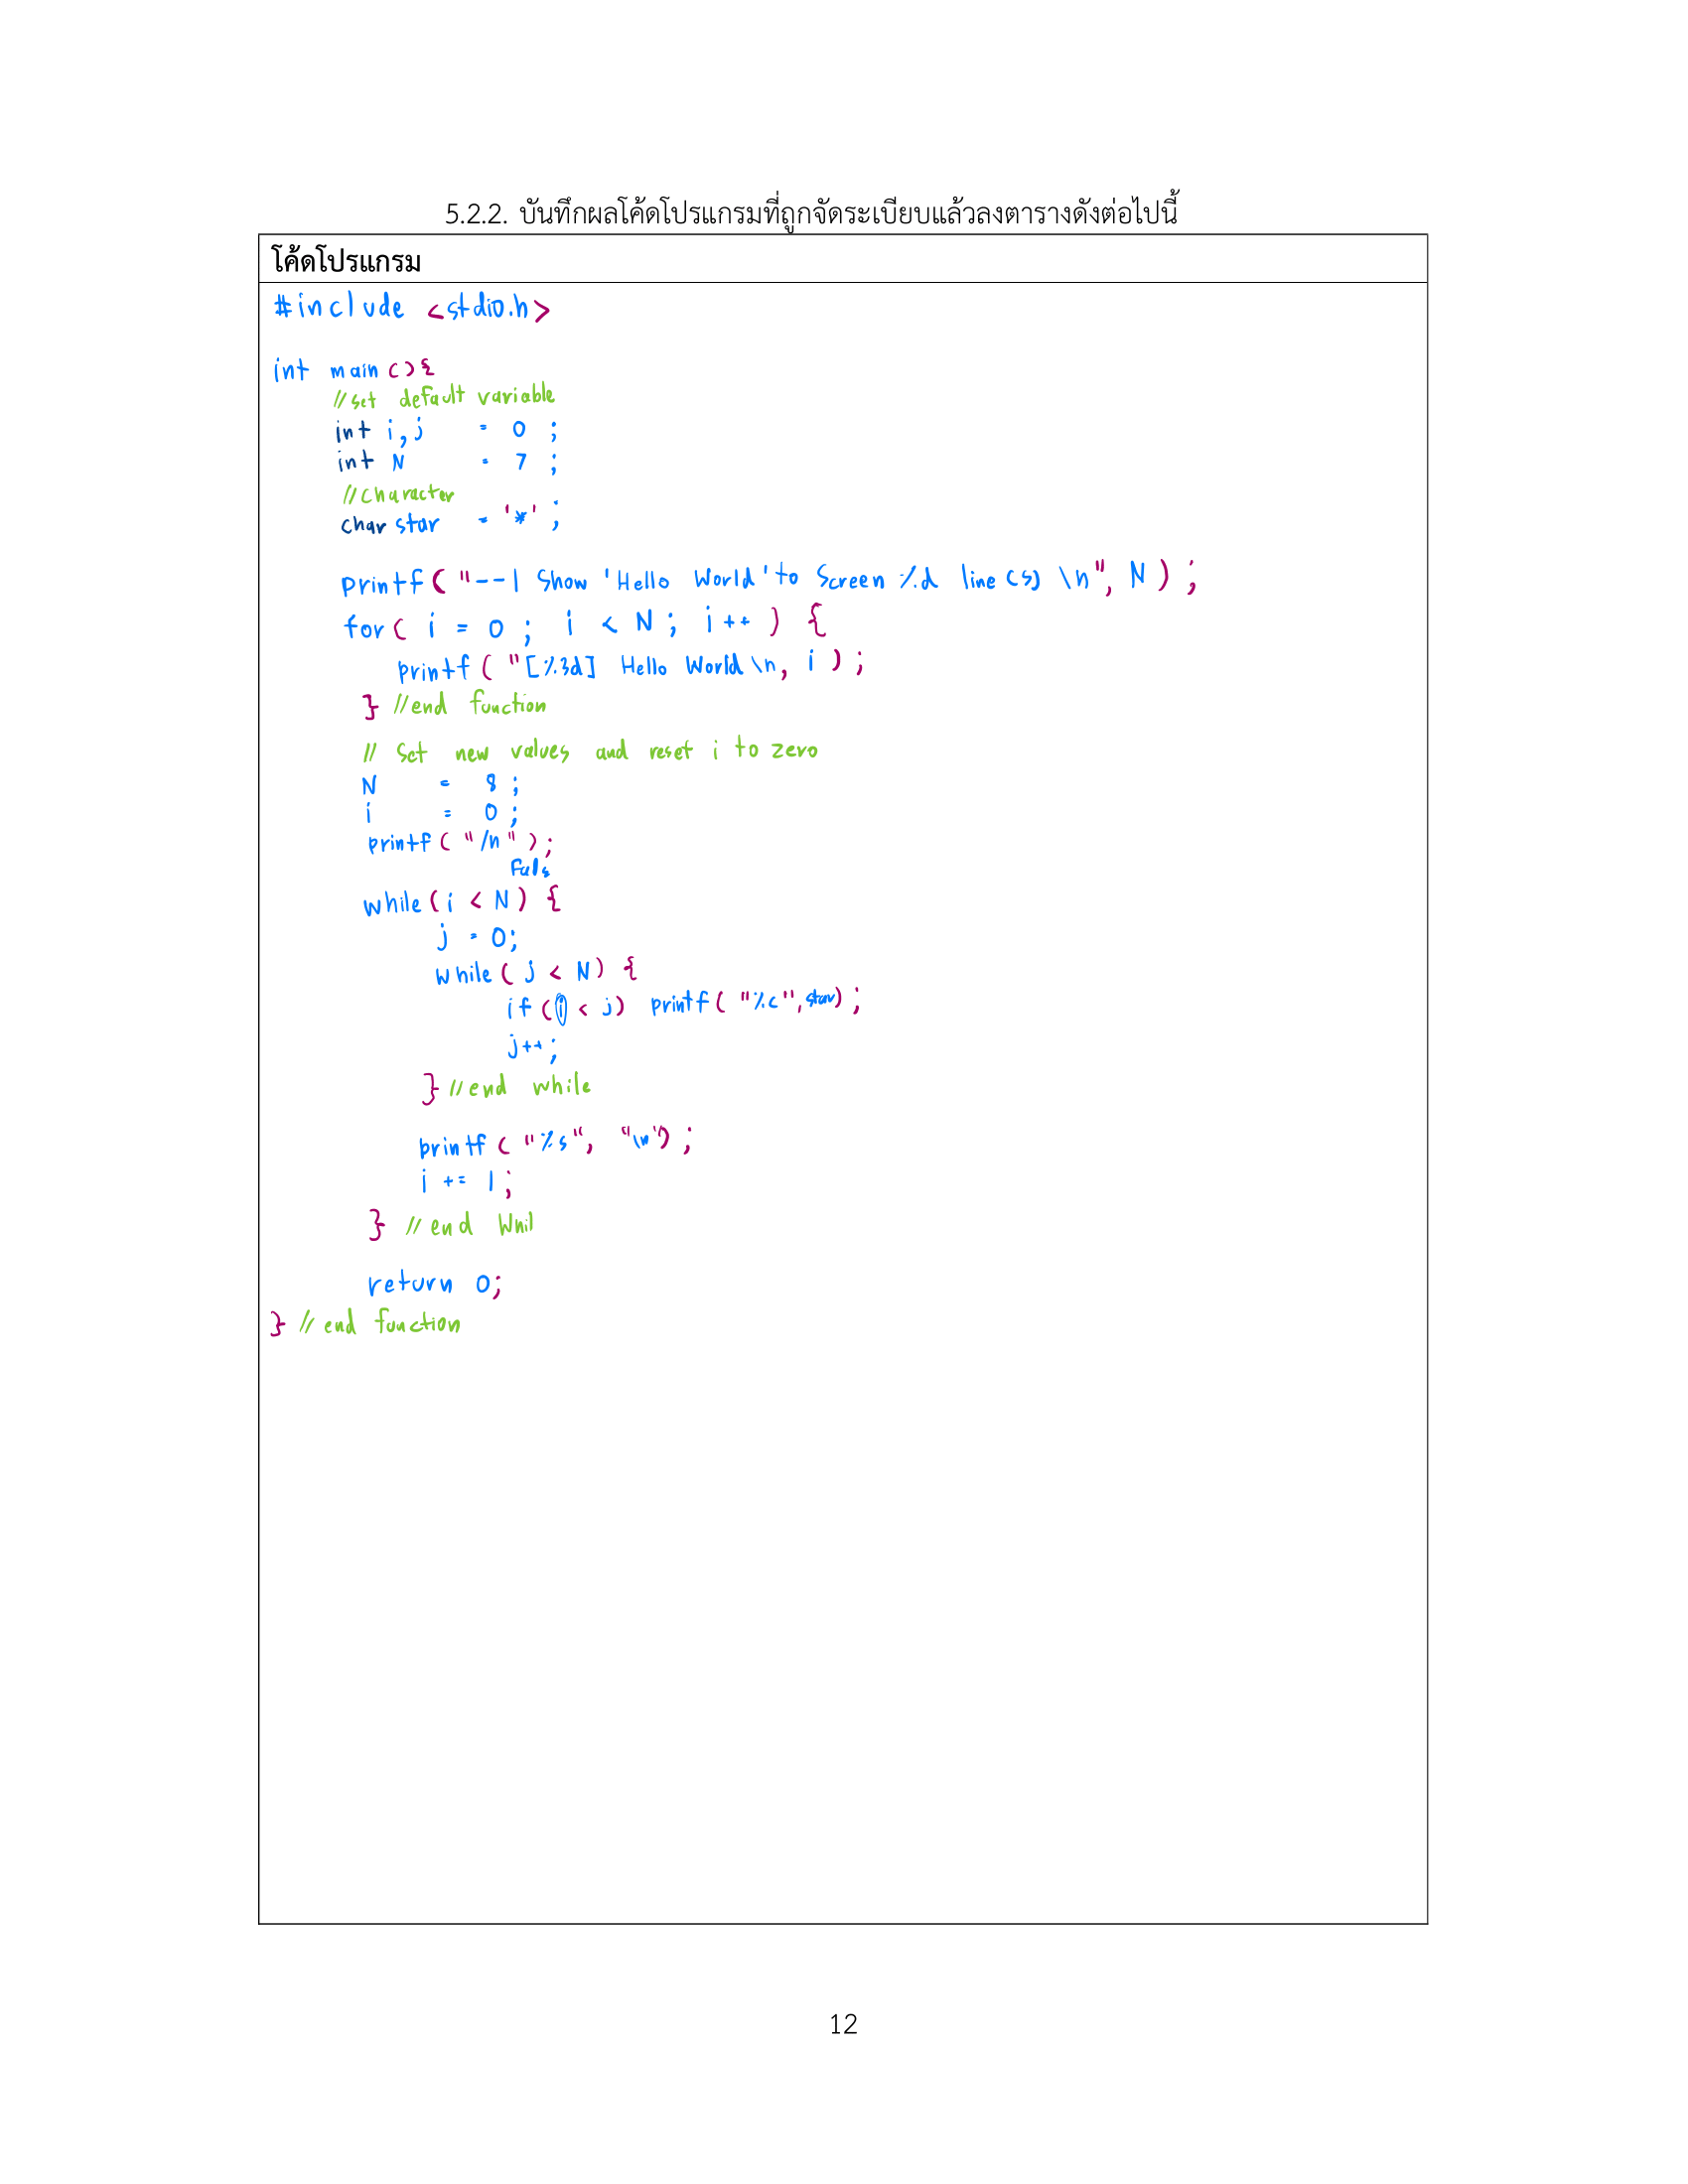 5.2.2. บันทึกผลโค้ดโปรแกรมที่ถูกจัดระเบียบแล้วลงตารางดังต่อไปนี้
โค้ดโปรแกรม
#include <stdio.h>
int main(){
//set default variable
int i,j = 0 ;
int N = 7 ;
//Character
char star = '*' ;
printf("--| Show 'Hello World' to Screen %d line(s) \n", N ) ;
for( i = 0 ; i < N ; i++ ) {
printf ( "[%3d] Hello World \n, i ) ;
} //end function
// Set new values and reset i to zero
N = 8 ;
i = 0 ;
printf( "/n" );
Fals
while(i < N) {
j = 0;
while( j < N) {
if (i < j) printf( "%c", star) ;
j++;
} //end while
printf ( "%s", "\n") ;
i += 1 ;
} // end Whil
return 0;
} // end function
12